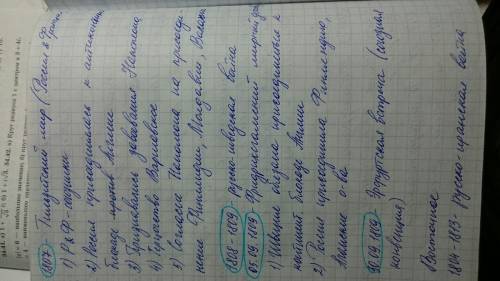 1807 Тильзитский мир (Россия и Фран
1) Р и Ф - союзники
2) Россия присоединилась к континент.
блокаде против Англии
3) Признавались завоевания Наполеона
4) Герцогство Варшавское
5) Согласие Наполеона на присоеди-
нение Финляндии, Молдавии, Валахи
1808 - 1809 русско-шведская война
05.09.1809 Фридрихсгамский мирный дог
1) Швеция обязана присоединиться к
контин. блокаде Англии
2) Россия присоединила Финляндию,
Аландские о-ва
1808 Эрфуртская встреча (создания
конвенции)
Восточное
1804 - 1813 - Русско-иранская война